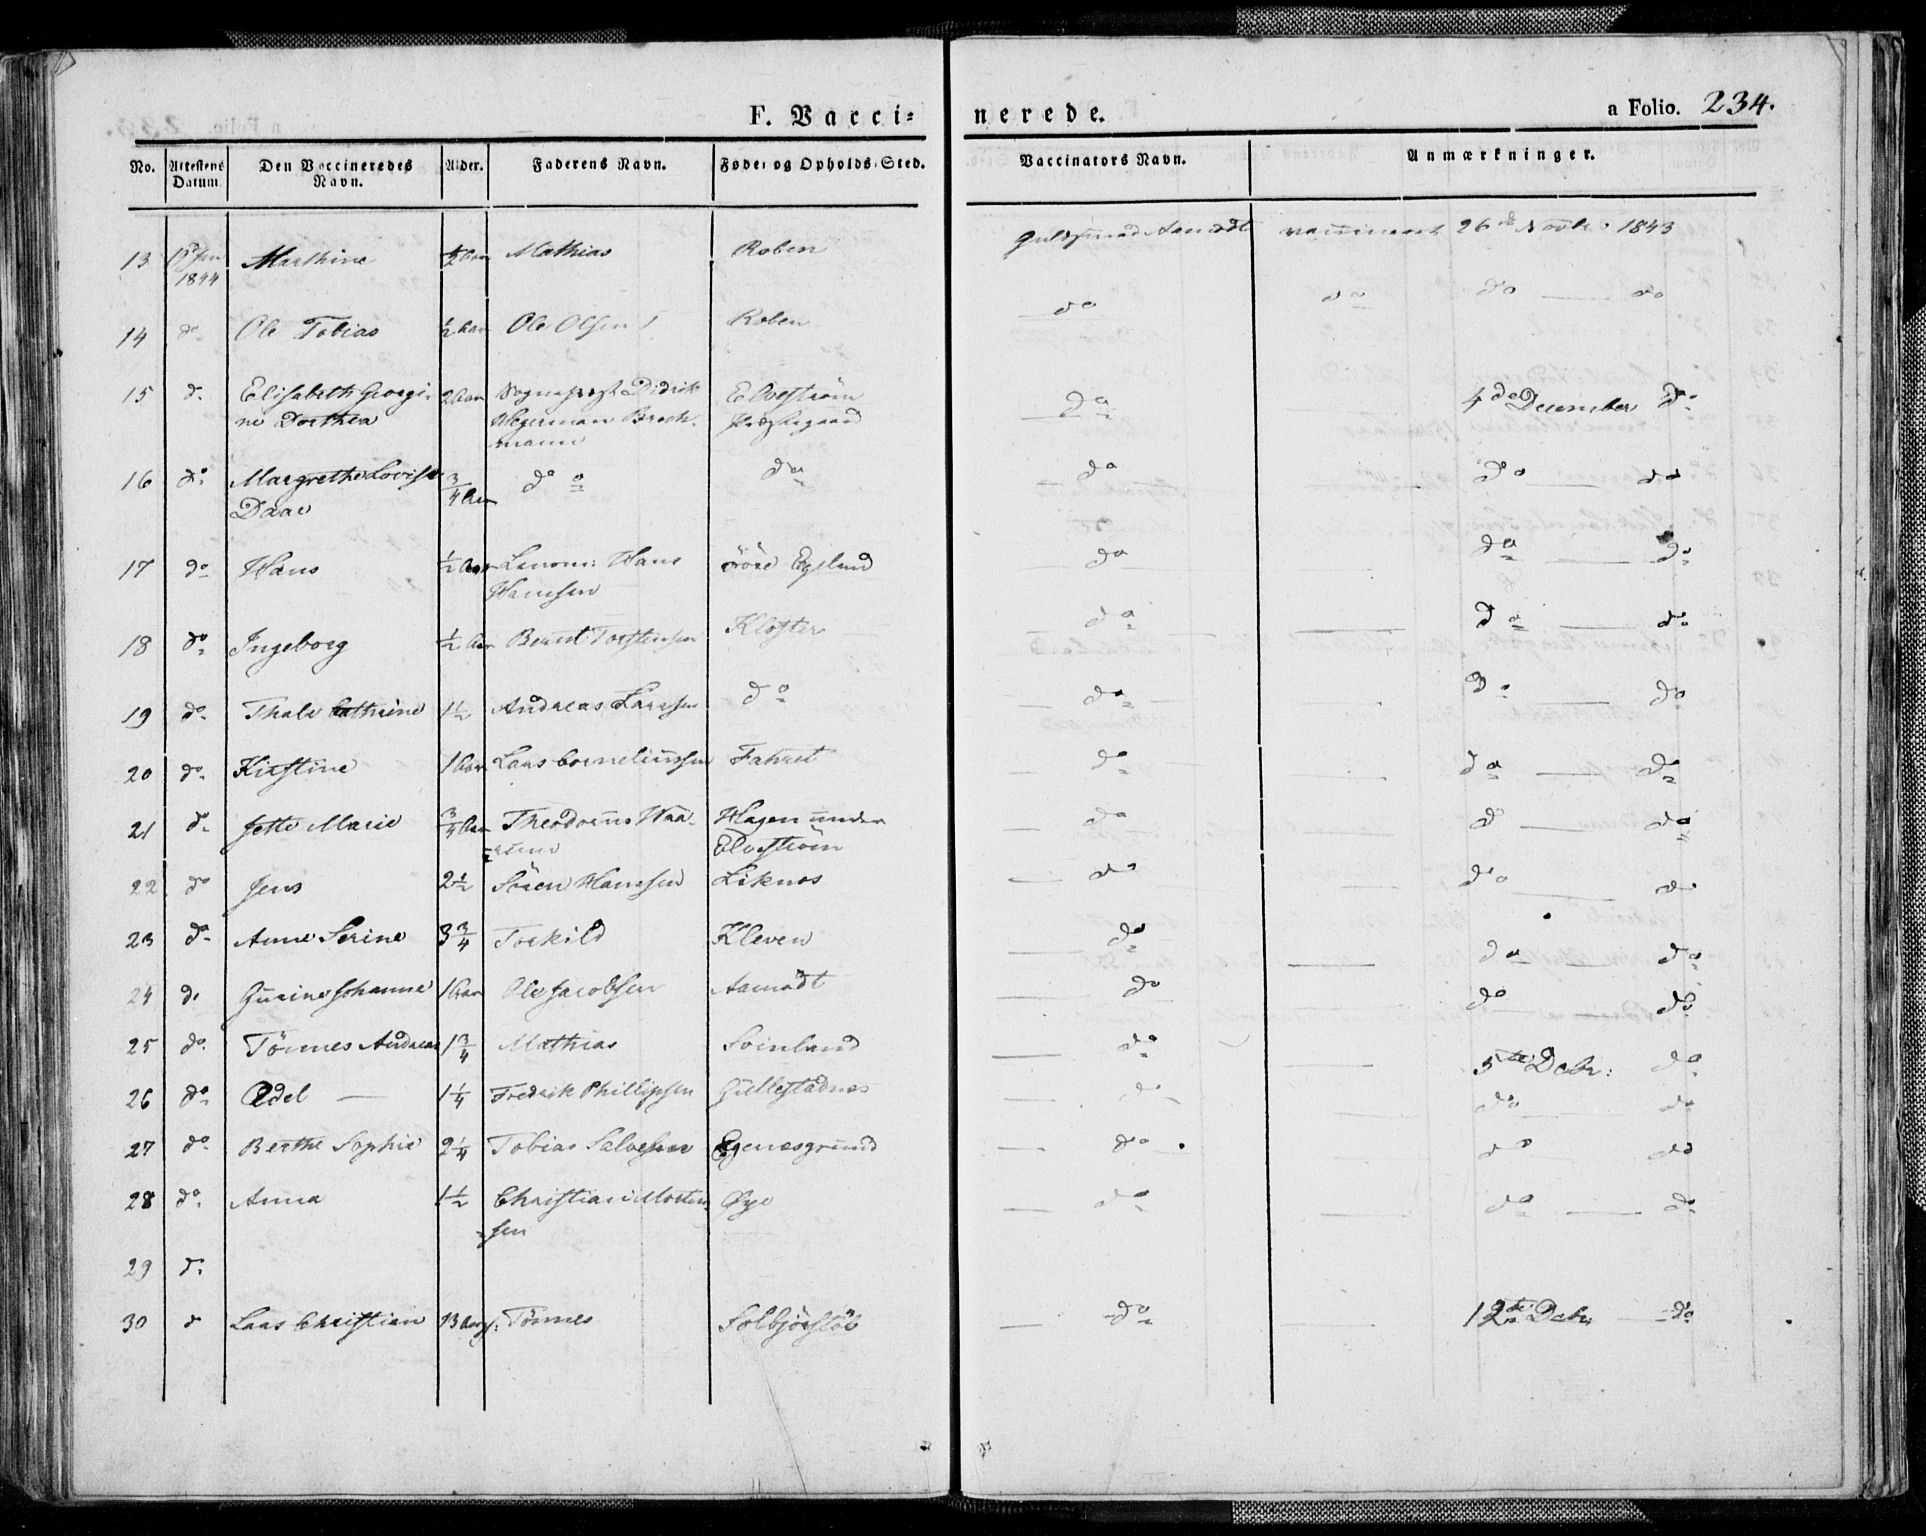 F. Vacci= nerede. a Folio. 234.
No. Attestens Datum. Den Vaccineredes Navn. Alder. Faderens Navn. Føde- og Opholds-Sted. Vaccinators Navn. Anmærkninger.
13 1844 Marthine ½ Aar Mathias Roben Guldsmed Aamodt vaccineret 26de Novbr. 1843
14 do Ole Tobias ½ Aar Ole Olsen Roben do do do do
15 do Elisabeth Georgi- 2 Aar Sogneprest Didrik Elvestrøm do 4de December do
ne Dorthea Wegerman Broch- Præstegaard
mann
16 do Margrethe Lovise ¾ Aar do do do do do
Daae
17 do Hans ½ Aar Hans Egelund do do do
Hansen
18 do Ingeborg ½ Aar Bernt Torstensen Kloster do do do
19 do Thale Cathrine 1½ Andreas Larssen do do do do
20 do Kirstine 1 Aar Lars Corneliussen Fahret do do do
21 do Jette Marie ¾ Aar Theodorus Waa- Hagen under do do do
=rum Elvestrøm
22 do Jens 2½ Sören Hanssen Liknes do do do
23 do Anne Serine 3¾ Torkild Kleven do do do
24 do Gurine Johanne 1 Aar Ole Jacobsen Aamodt do do do
25 do Tönnes Andreas 1¾ Mathias Svinland do 5te Decbr: do
26 do Edel — 1¼ Fredrik Phillipsen Gullestadnes do do do
27 do Berthe Sophie 2¼ Tobias Salvesen Egenesgrund do do do
28 do Anna 1½ Christian Morten- Øye do do do
=sen
29 do
30 do Lars Christian 13 Aar Tönnes Solbjörslöb do 12te Decbr. do